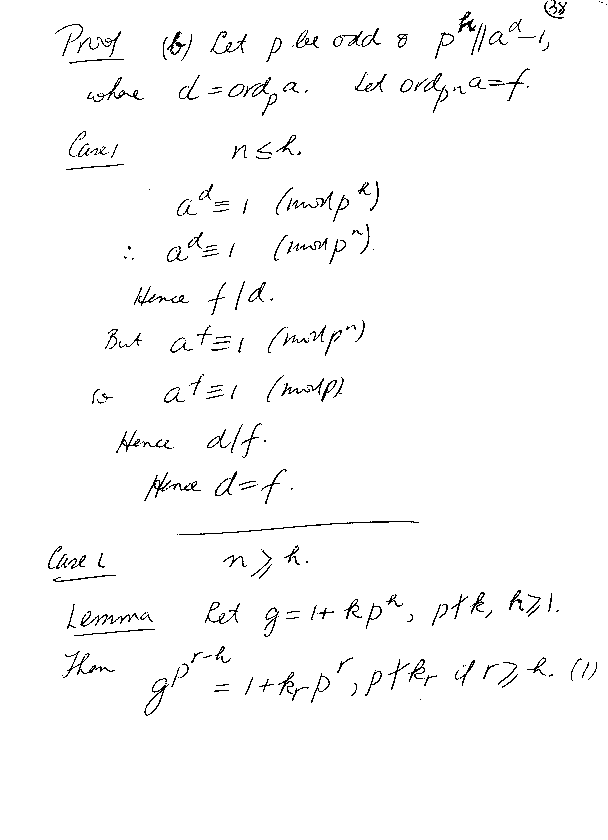 38
Proof (b) Let p be odd & p^h || a^d - 1,
where d = ord_p a. Let ord_{p^n} a = f.
Case 1 n ≤ h.
a^d ≡ 1 (mod p^h)
∴ a^d ≡ 1 (mod p^n).
Hence f | d.
But a^f ≡ 1 (mod p^n)
so a^f ≡ 1 (mod p)
Hence d | f.
Hence d = f.
Case 2 n ≥ h.
Lemma Let g = 1 + kp^h, p ∤ k, h ≥ 1.
Then g^{p^{r-h}} = 1 + k_r p^r, p ∤ k_r if r ≥ h. (1)